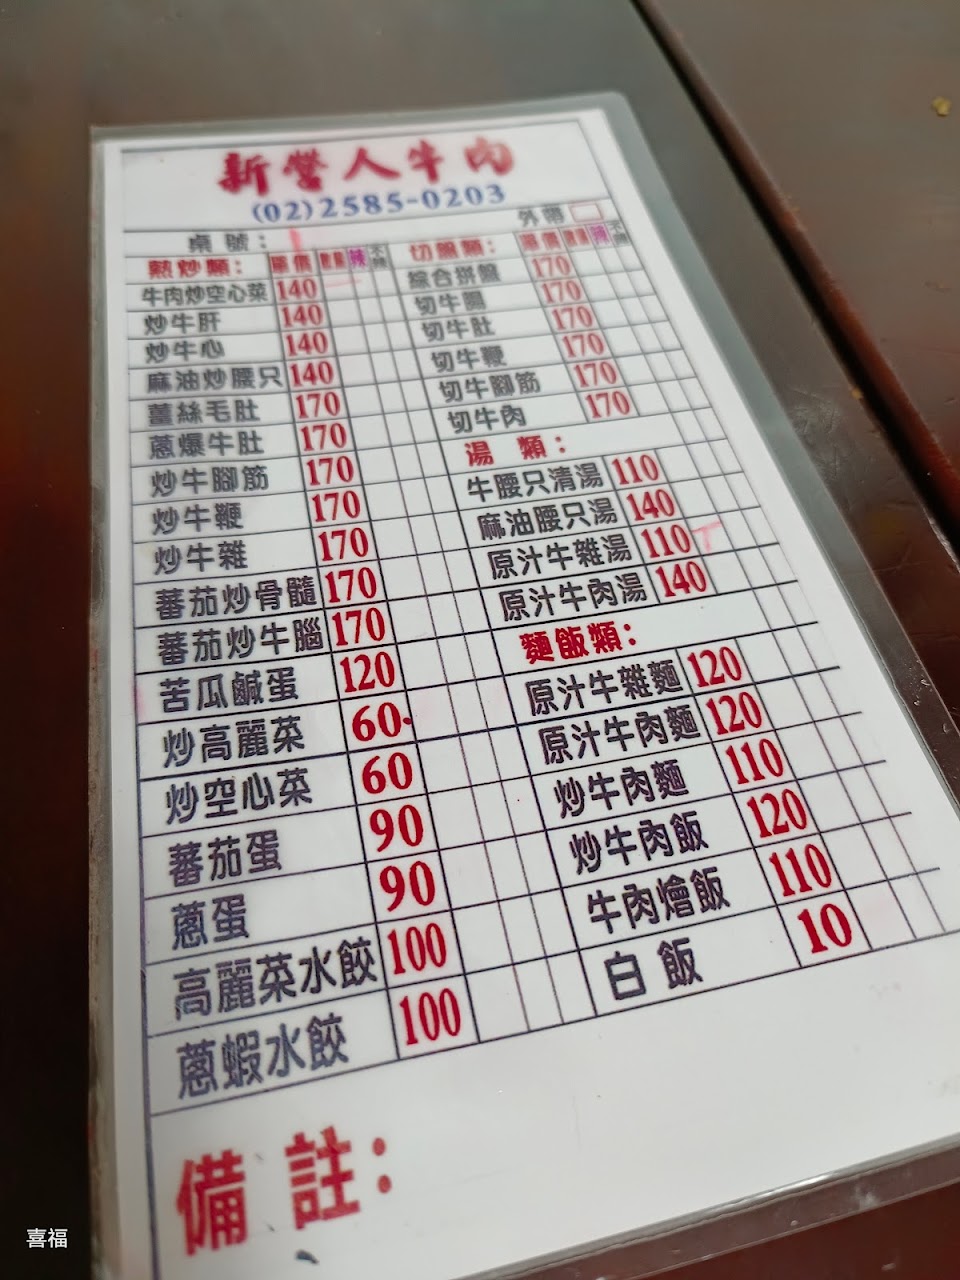 新營人牛肉
(02)2585-0203
桌號： 外帶
熱炒類： 單價 數量 辣 不辣
牛肉炒空心菜 140
炒牛肝 140
炒牛心 140
麻油炒腰只 140
薑絲毛肚 170
蔥爆牛肚 170
炒牛腳筋 170
炒牛鞭 170
炒牛雜 170
蕃茄炒骨髓 170
蕃茄炒牛腦 170
苦瓜鹹蛋 120
炒高麗菜 60
炒空心菜 60
蕃茄蛋 90
蔥蛋 90
高麗菜水餃 100
蔥蝦水餃 100
切盤類： 單價 數量 辣 不辣
綜合拼盤 170
切牛腸 170
切牛肚 170
切牛鞭 170
切牛腳筋 170
切牛肉 170
湯類：
牛腰只清湯 110
麻油腰只湯 140
原汁牛雜湯 110
原汁牛肉湯 140
麵飯類：
原汁牛雜麵 120
原汁牛肉麵 120
炒牛肉麵 110
炒牛肉飯 120
牛肉燴飯 110
白飯 10
備註：
喜福